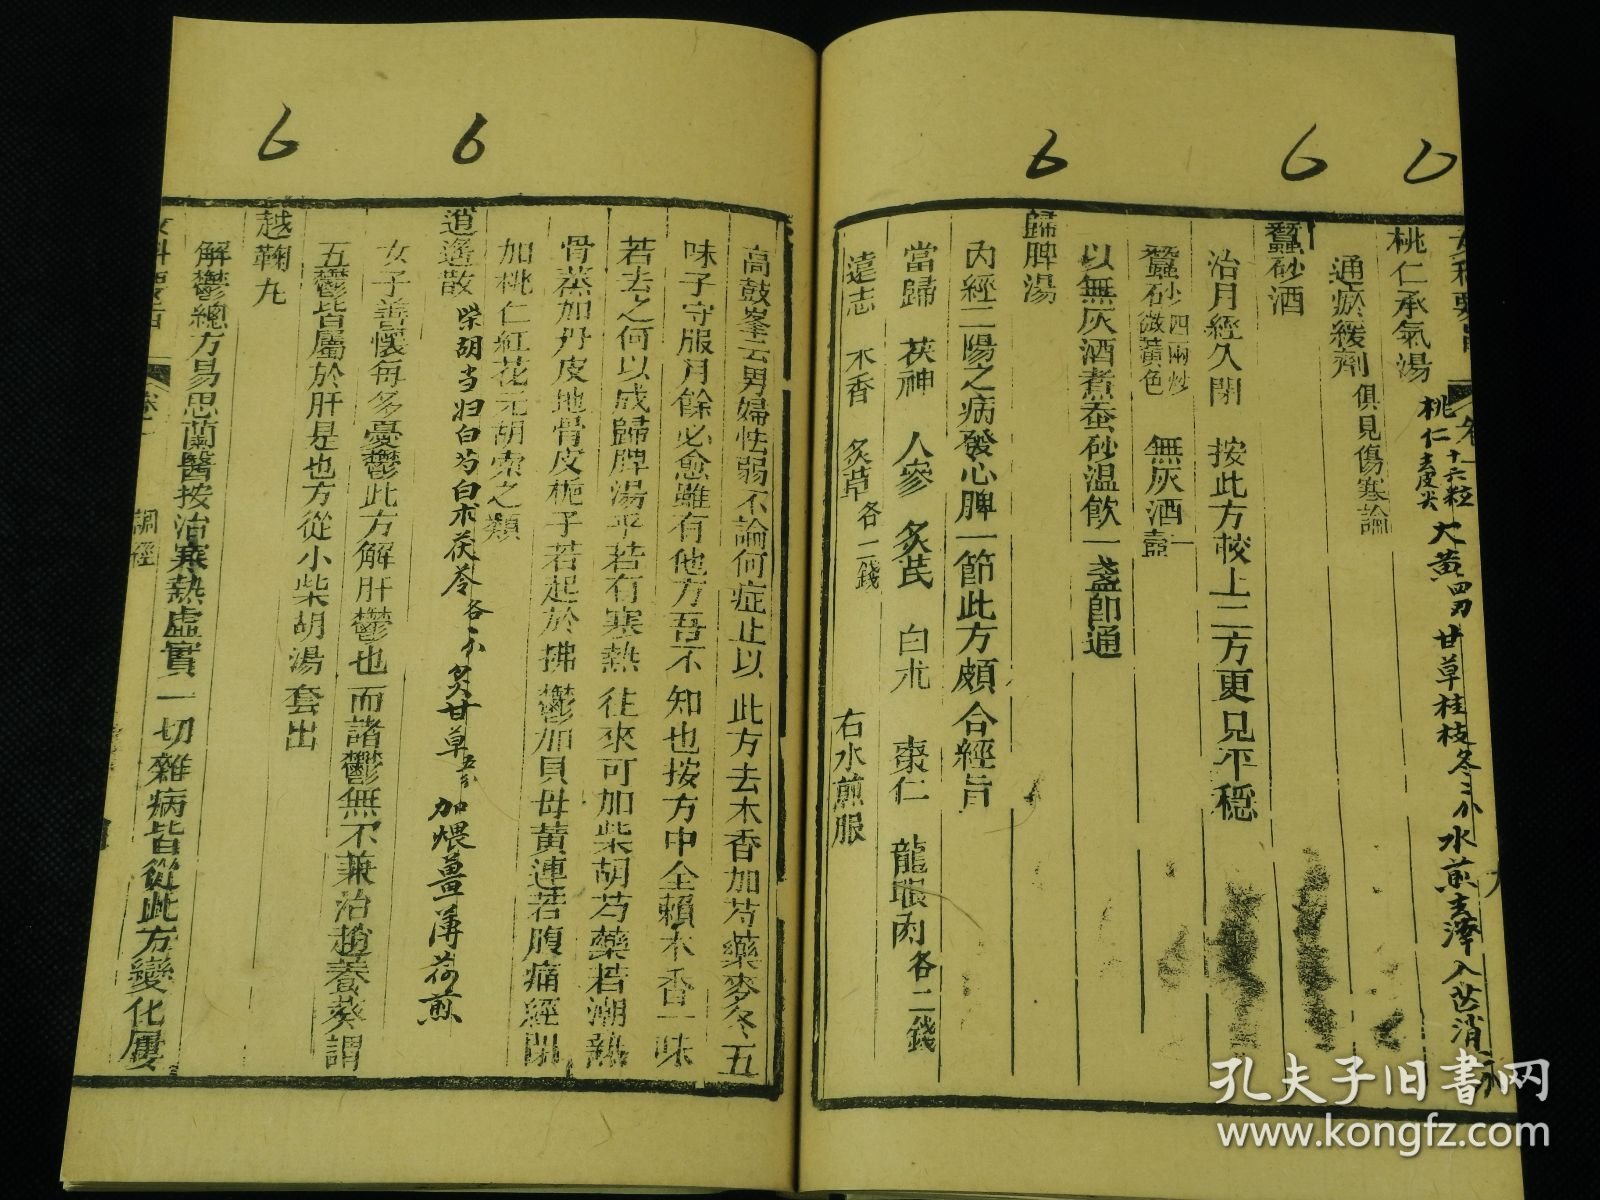 桃仁承氣湯 桃仁十六粒去皮尖 大黃四刃 甘草桂枝各二分 水煎去滓入芒消
通瘀緩劑 俱見傷寒論
蠶砂酒
治月經久閉 按此方校上二方更見平穩
蠶砂四兩炒微黃色 無灰酒一壺
以無灰酒煮蚕砂温飲一盞卽通
歸脾湯
內經二陽之病發心脾一節此方頗合經旨
當歸 茯神 人參 炙芪 白朮 棗仁 龍眼肉各二錢
遠志 木香 炙草各一錢 右水煎服
高鼓峯云男婦怯弱不論何症止以此方去木香加芍藥麥冬五
味子守服月餘必愈雖有他方吾不知也按方中全賴木香一味
若去之何以成歸脾湯乎若有寒熱往來可加柴胡芍藥若潮熱
骨蒸加丹皮地骨皮梔子若起於拂鬱加貝母黃連若腹痛經閉
加桃仁紅花元胡索之類
逍遙散 柴胡当归白芍白朮茯苓各一分 炙甘草五分 加煨薑薄荷煎
女子善懷每多憂鬱此方解肝鬱也而諸鬱無不兼治趙養葵謂
五鬱皆屬於肝是也方從小柴胡湯套出
越鞠丸
解鬱總方易思蘭醫按治寒熱虛實一切雜病皆從此方變化屢
女科要旨 卷一 調經
6
6
6
6
孔夫子旧書网
www.kongfz.com